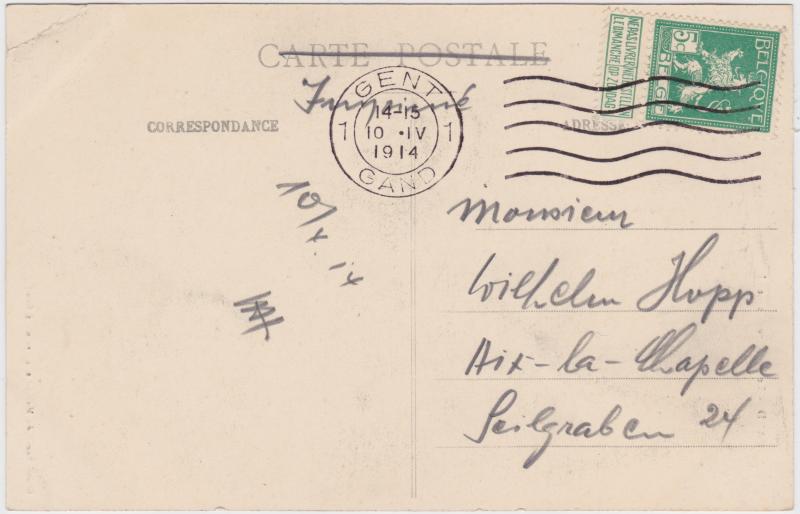 CARTE POSTALE
Imprimé
CORRESPONDANCE
ADRESSE
NE PAS LIVRER
LE DIMANCHE
NIET BESTELLEN
OP ZONDAG
BELGIQUE
5c
BELGIË
GENT
14-15
1 10 •IV 1
1914
GAND
10/4.14
Monsieur
Wilhelm Hopp
Aix-la-Chapelle
Seilgraben 24